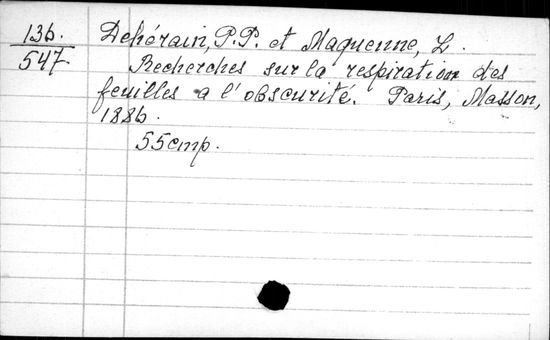 136.
547.
Dehérain, P.P. et Maquenne, L.
Recherches sur la respiration des
feuilles a l'obscurité. Paris, Masson,
1886.
55 cmp.